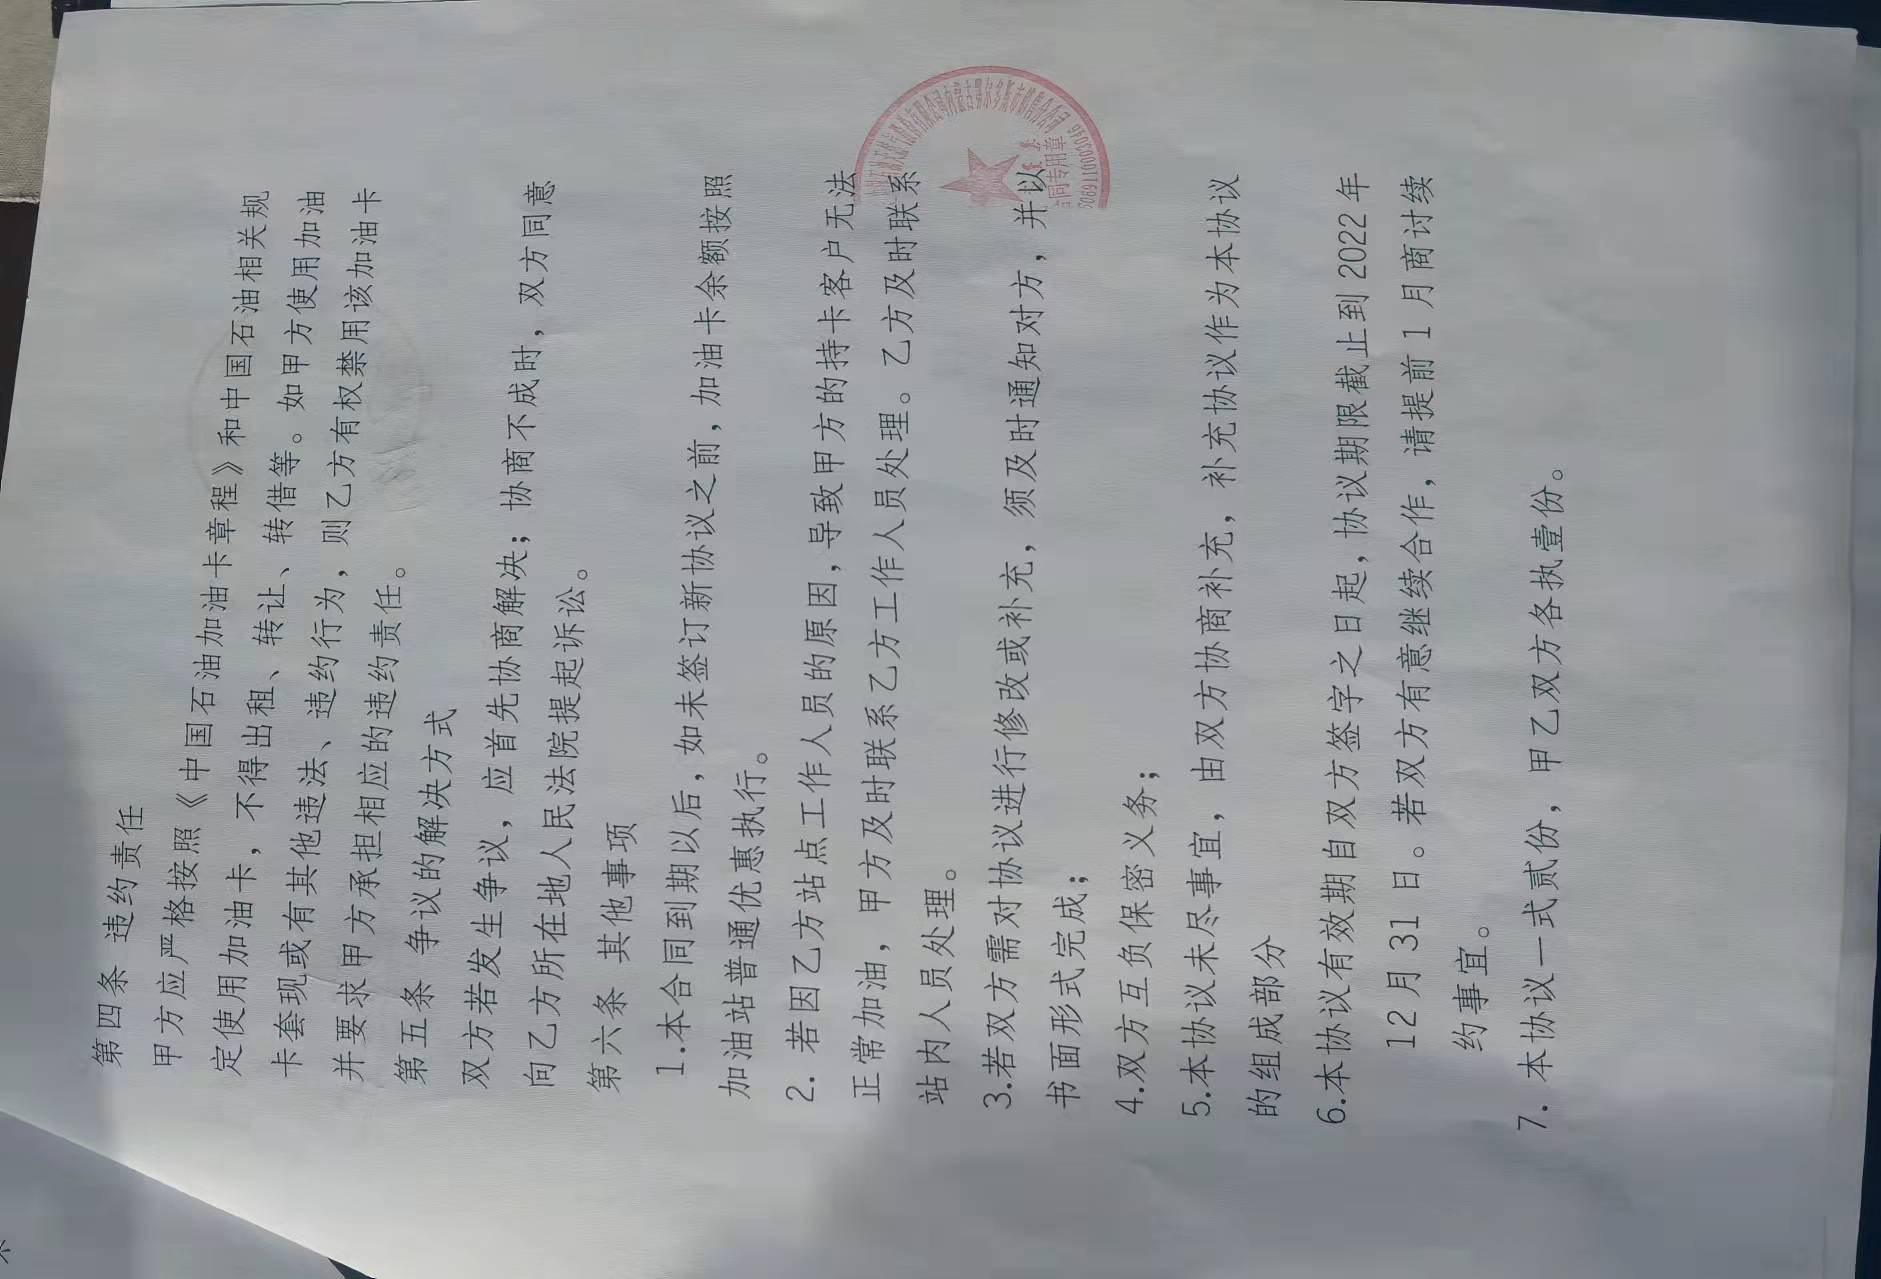 第四条 违约责任
甲方应严格按照《中国石油加油卡章程》和中国石油相关规
定使用加油卡，不得出租、转让、转借等。如甲方使用加油
卡套现或有其他违法、违约行为，则乙方有权禁用该加油卡
并要求甲方承担相应的违约责任。
第五条 争议的解决方式
双方若发生争议，应首先协商解决；协商不成时，双方同意
向乙方所在地人民法院提起诉讼。
第六条 其他事项
1.本合同到期以后，如未签订新协议之前，加油卡余额按照
加油站普通优惠执行。
2. 若因乙方站点工作人员的原因，导致甲方的持卡客户无法
正常加油，甲方及时联系乙方工作人员处理。乙方及时联系
站内人员处理。
3.若双方需对协议进行修改或补充，须及时通知对方，并以
书面形式完成；
4.双方互负保密义务；
5.本协议未尽事宜，由双方协商补充，补充协议作为本协议
的组成部分
6.本协议有效期自双方签字之日起，协议期限截止到 2022 年
12 月 31 日。若双方有意继续合作，请提前 1 月商讨续
约事宜。
7. 本协议一式贰份，甲乙双方各执壹份。
同专用章